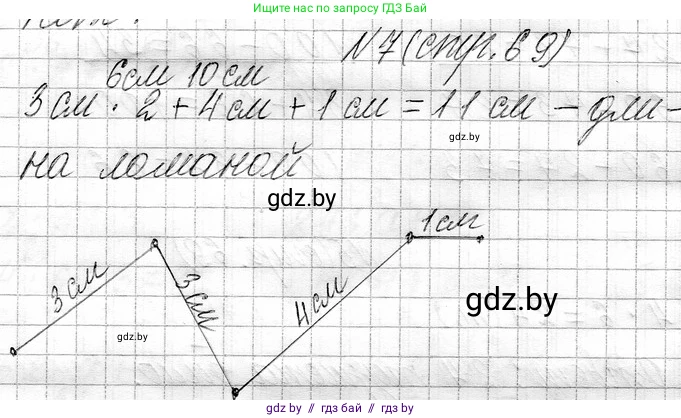 Ищите нас по запросу ГДЗ Бай
N 7 (стр. 69)
6см 10см
3см · 2 + 4см + 1см = 11см - дли-
gdz.by
на ломаной
gdz.by
1см
3см
3см
4см
gdz.by
gdz.by
gdz.by // гдз бай // гдз by